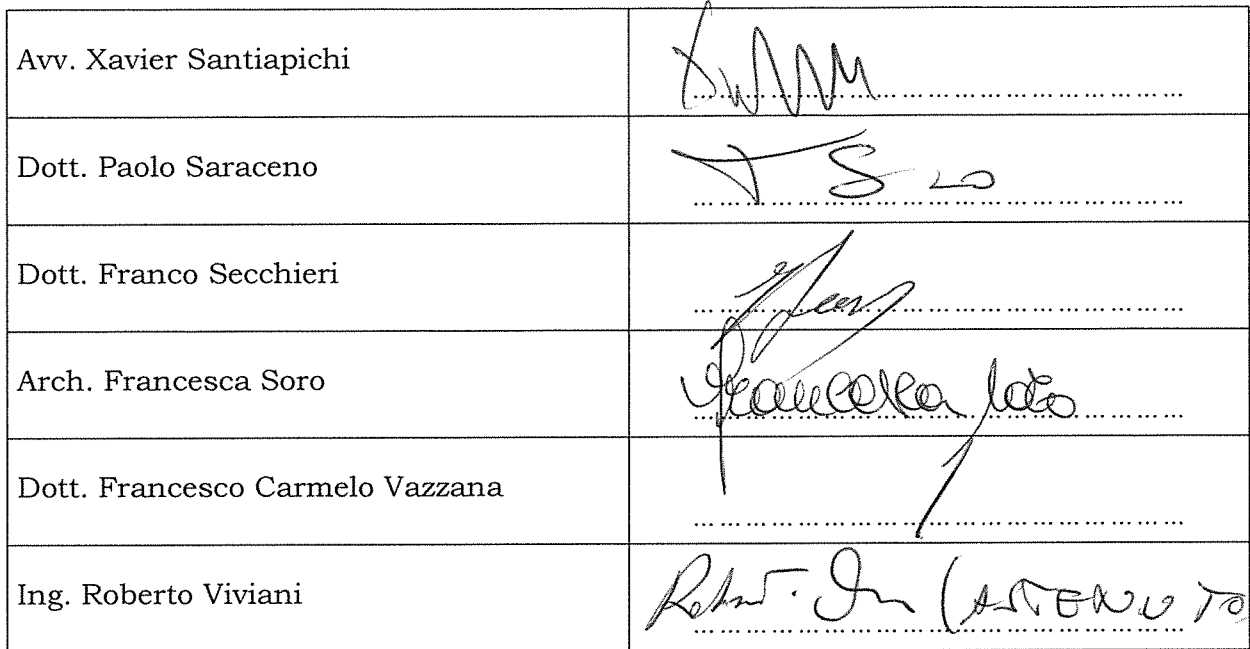 Avv. Xavier Santiapichi
Dott. Paolo Saraceno
Dott. Franco Secchieri
Arch. Francesca Soro
Francesca Soro
Dott. Francesco Carmelo Vazzana
Ing. Roberto Viviani
(ASTENUTO)